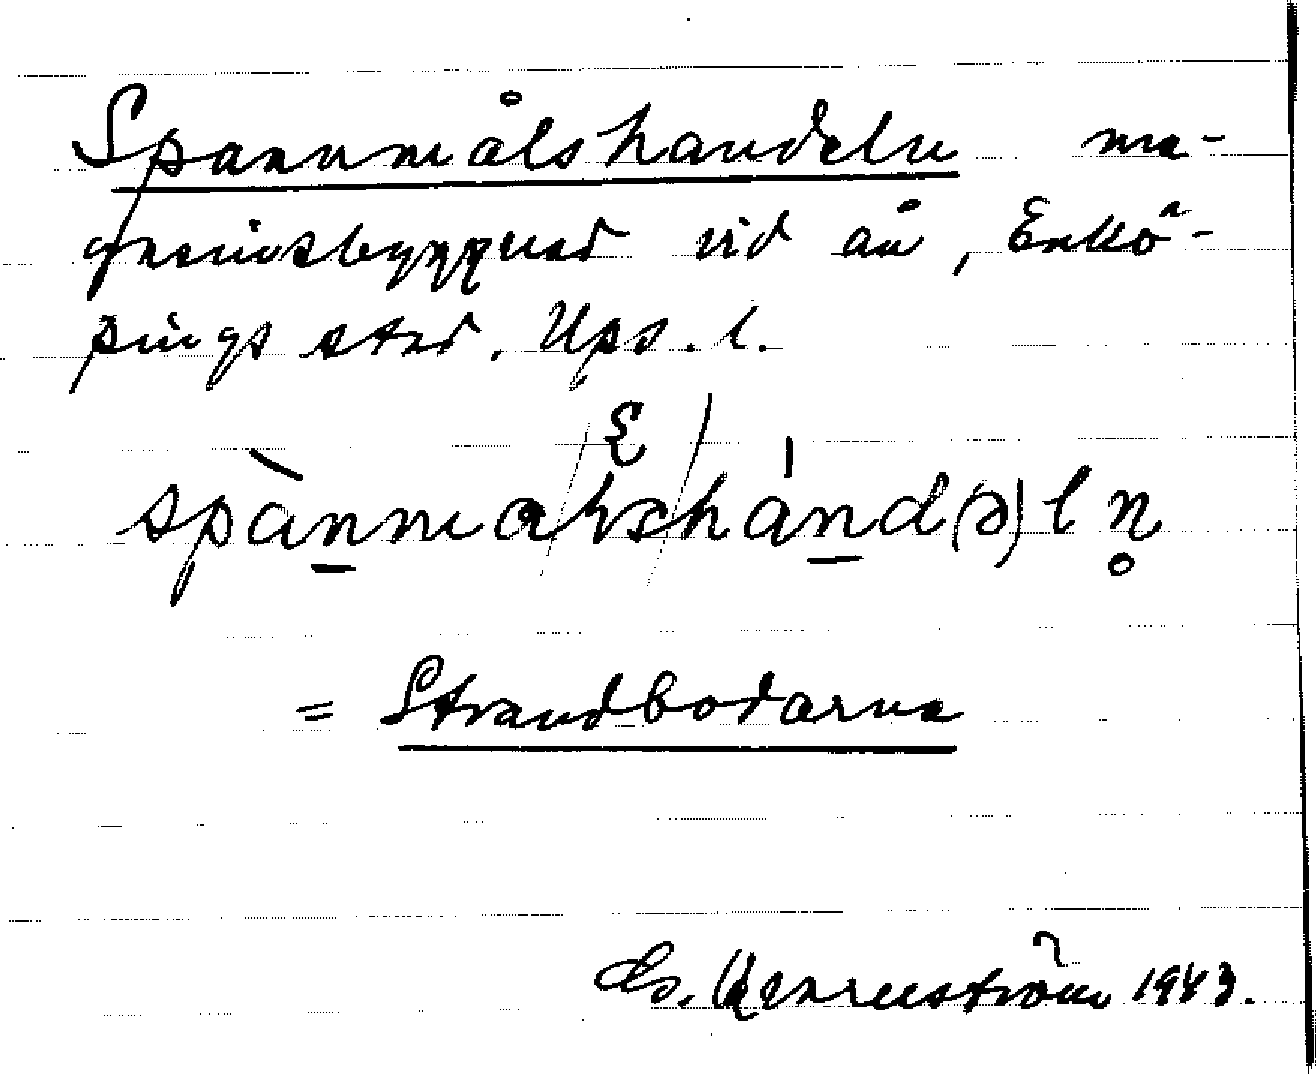 Spannmålshandeln ma-
gasinsbyggnad vid ån, Enkö-
pings stad. Ups. l.
spànmalshánd(ə)ln̥
= Strandbodarna
1943.